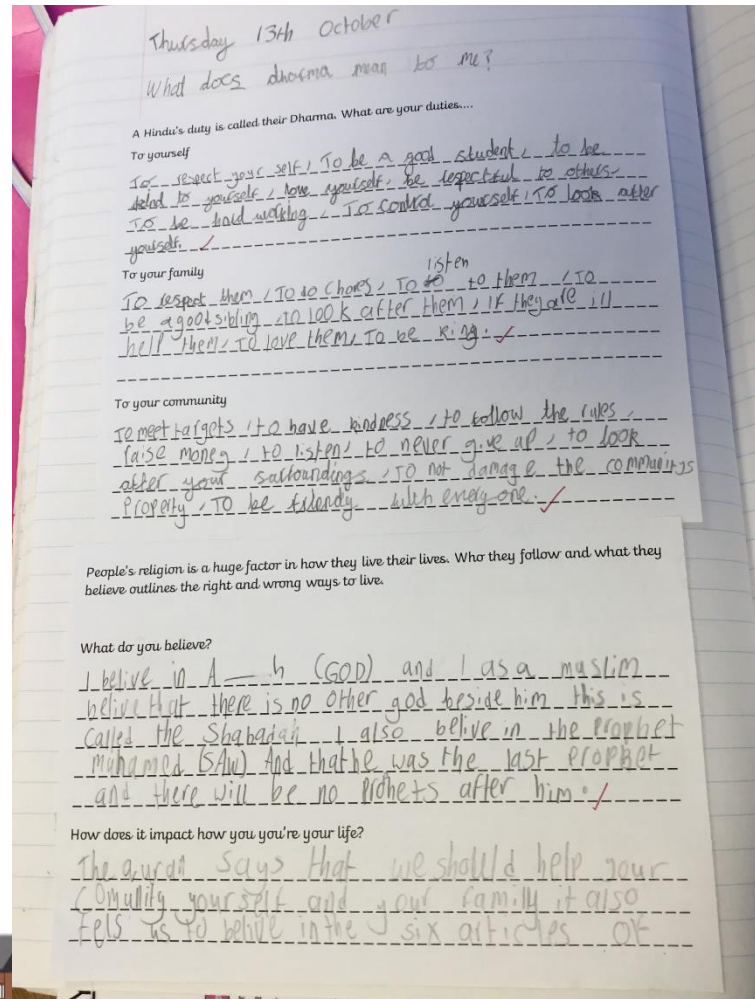 Thursday 13th October
What does dharma mean to me?
A Hindu's duty is called their Dharma. What are your duties....
To yourself
To respect your self, To be a good student, to be
kind to yourself, love yourself, be respectful to others,
To be hard working, To control yourself, To look after
yourself.
To your family
listen
To respect them, To do chores, To to them, To
be a good sibling to look after them, If they are ill
help them, To love them, To be king.
To your community
To meet targets, to have kindness, to follow the rules,
raise money, to listen, to never give up, to look
after your surroundings, To not damage the communitys
Property, To be friendy with every one.
People's religion is a huge factor in how they live their lives. Who they follow and what they
believe outlines the right and wrong ways to live.
What do you believe?
I belive in A——h (GOD) and I as a muslim
belive that there is no other god beside him this is
called the Shahadah I also belive in the Prophet
Muhamed (SAW) And that he was the last prophet
and there will be no Prohets after him.
How does it impact how you you're your life?
The quran says that we should help your
Comunity yourself and your family it also
tels us to belive in the six articles of